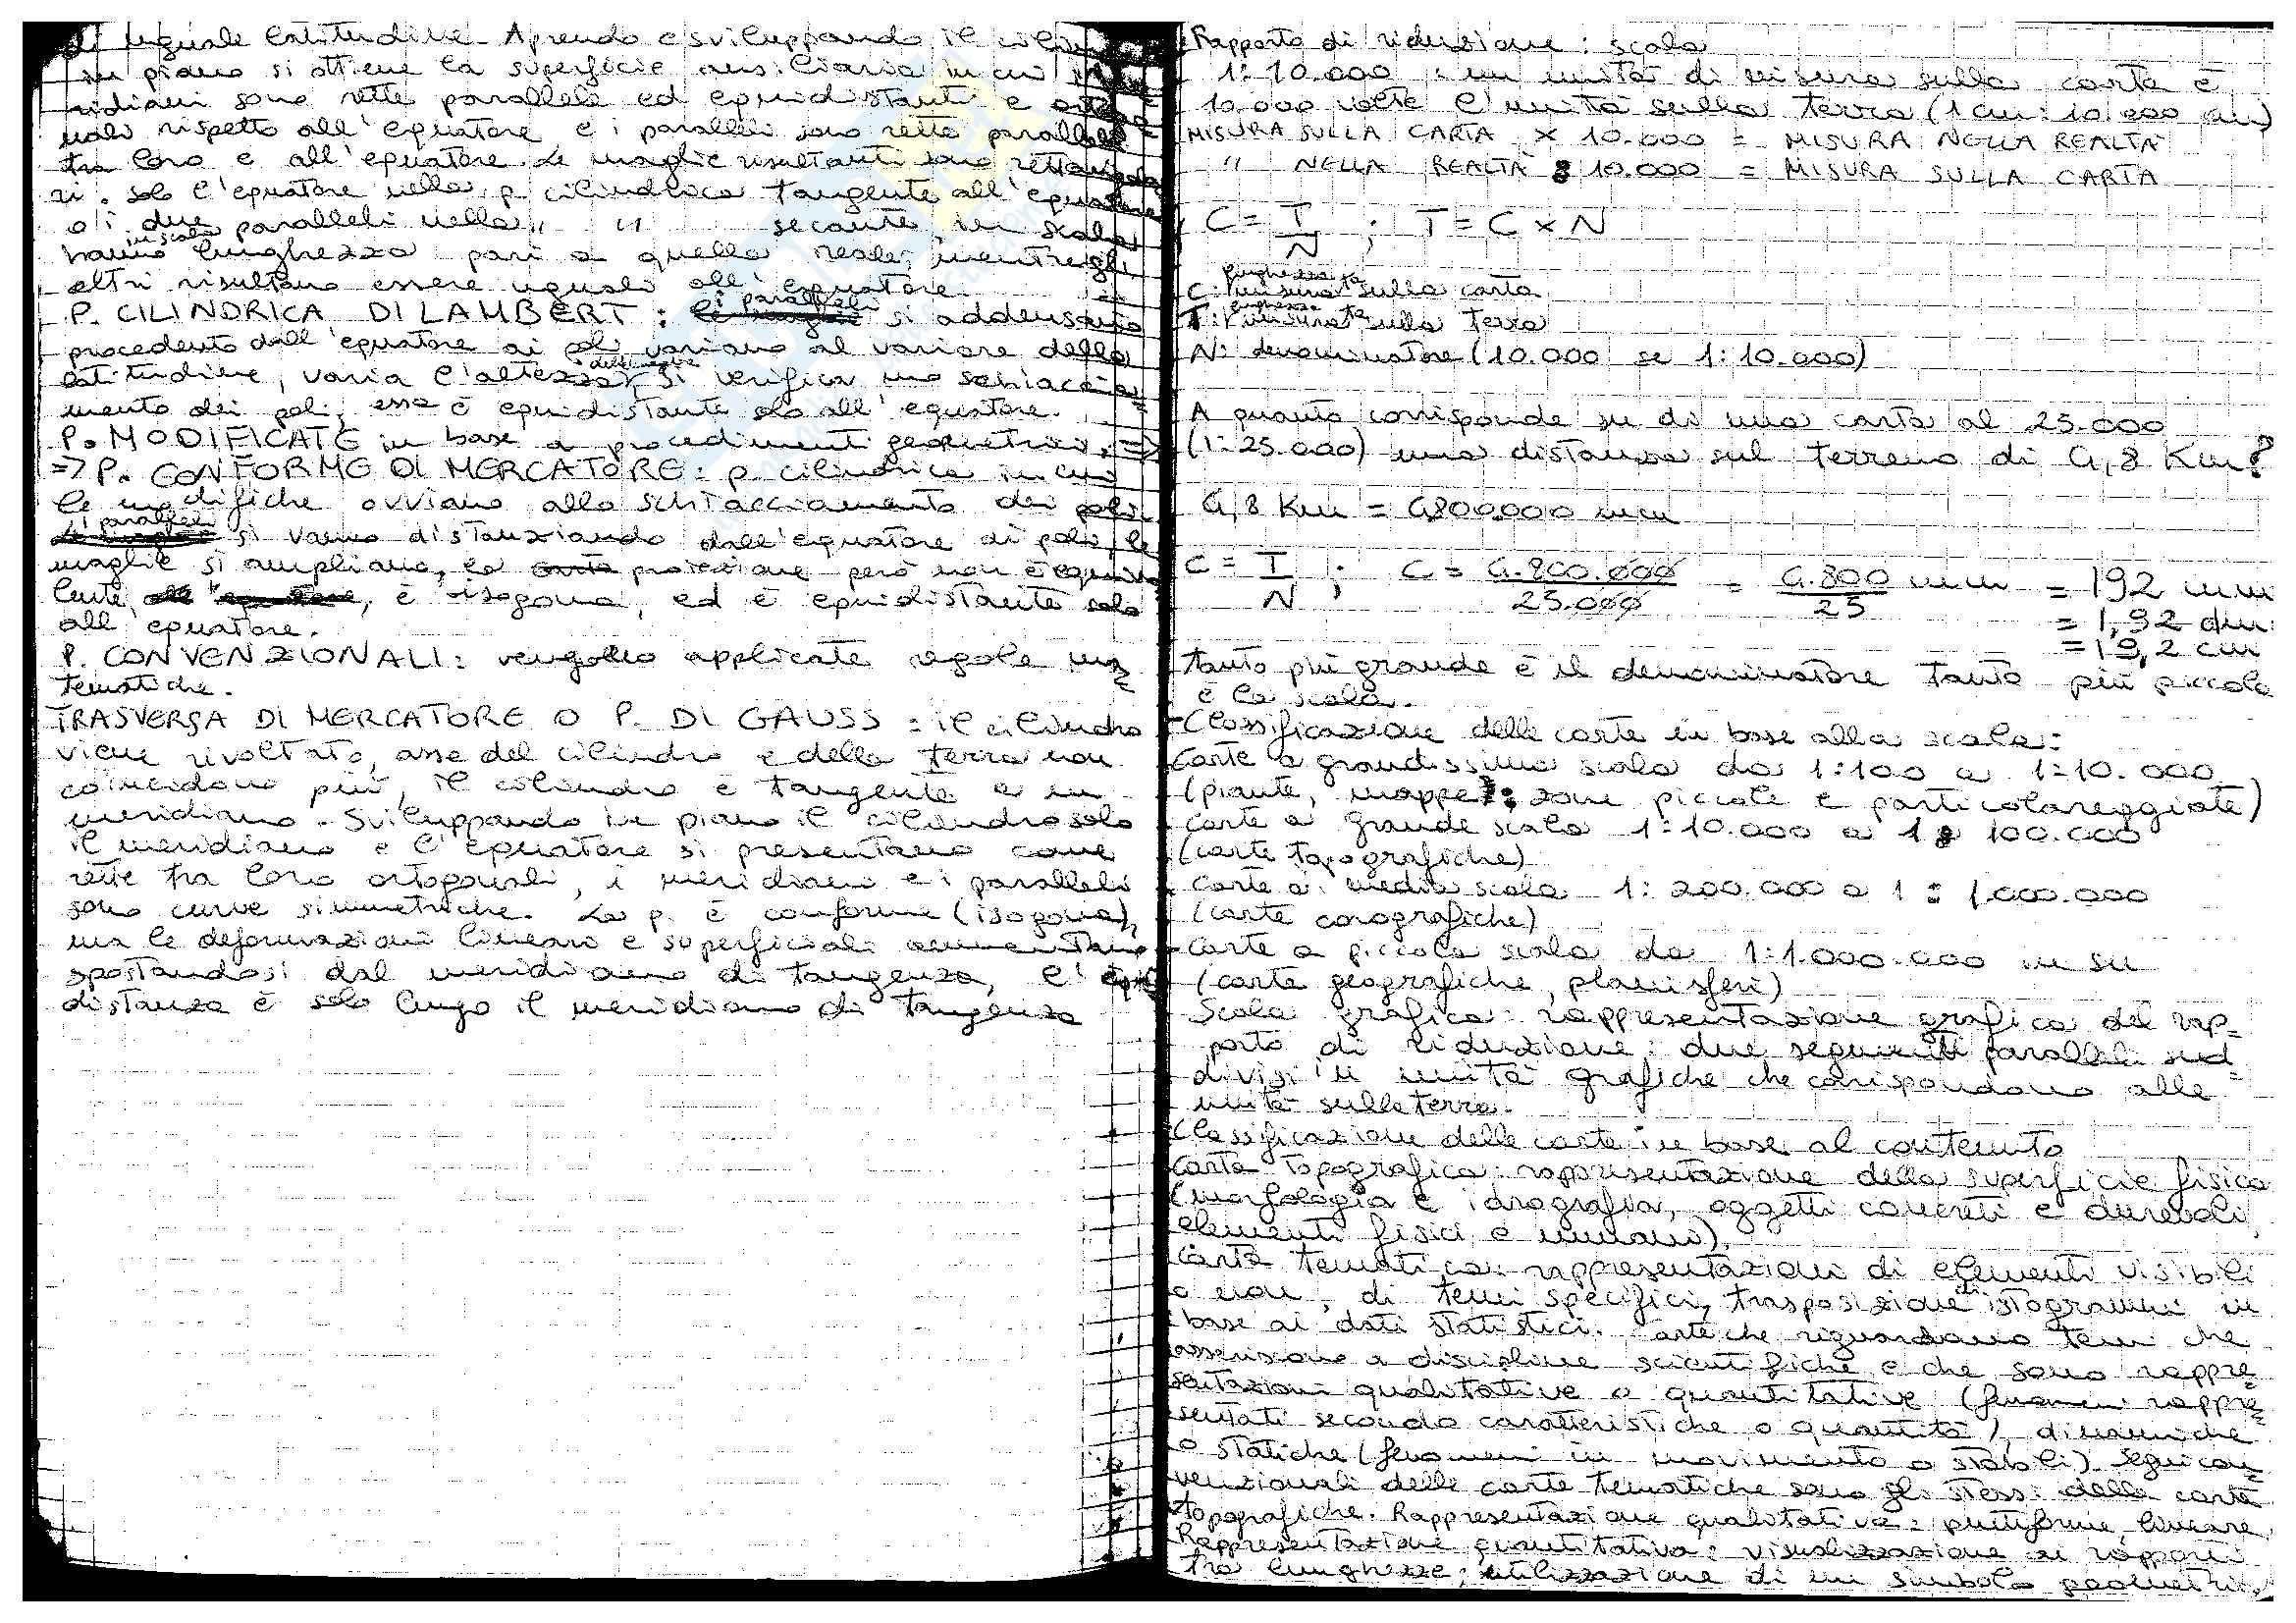 di uguale latitudine. Aprendo e sviluppando il
in piano si ottiene la superficie ausiliaria in cui i
ridiani sono rette parallele ed equidistanti e
nali rispetto all'equatore e i paralleli sono rette parallele
tra loro e all'equatore. Le maglie risultanti sono rettango
ri. Solo l'equatore nella p. cilindrica tangente all'equatore
o i due paralleli nella " " secante, in scala
hanno in scala lunghezza pari a quella reale, mentre gli
altri risultano essere uguali all'equatore.
P. CILINDRICA DI LAMBERT: i paralleli si addensano
procedento dall'equatore ai poli variano al variare della
latitudine, varia l'altezza delle maglie, si verifica uno schiaccia=
mento dei poli, essa è equidistante solo all'equatore.
P. MODIFICATE in base a procedimenti geometrici. =>
=> P. CONFORME DI MERCATORE: p. cilindrica in cui
le modifiche ovviano allo schiacciamento dei poli.
i paralleli si vanno distanziando dall'equatore ai poli, le
maglie si ampliano, la proiezione però non è equiva
lente, è isogona, ed è equidistante solo
all'equatore.
P. CONVENZIONALI: vengono applicate regole ma=
tematiche.
TRASVERSA DI MERCATORE O P. DI GAUSS: il cilindro
viene rivoltato, asse del cilindro e della terra non
coincidono più, il cilindro è tangente a un
meridiano. Sviluppando in piano il cilindro solo
il meridiano e l'equatore si presentano come
rette tra loro ortogonali, i meridiani e i paralleli
sono curve simmetriche. La p. è conforme (isogona),
ma le deformazioni lineari e superficiali aumentano
spostandosi dal meridiano di tangenza, l'equi
distanza è solo lungo il meridiano di tangenza
Rapporto di riduzione: scala
1:10.000 : un unità di misura sulla carta è
10.000 volte l'unità sulla terra (1 cm: 10.000 cm)
MISURA SULLA CARTA x 10.000 = MISURA NELLA REALTÀ
" NELLA REALTÀ : 10.000 = MISURA SULLA CARTA
C = T/N ; T = C x N
C: lunghezza misurata sulla carta
T: lunghezza misurata sulla terra
N: denominatore (10.000 se 1:10.000)
A quanto corrisponde su di una carta al 25.000
(1:25.000) una distanza sul terreno di 4,8 Km?
4,8 Km = 4800.000 mm
C = T/N ; C = 4.800.000/25.000 = 4.800/25 mm = 192 mm
= 1,92 dm
= 19,2 cm
tanto più grande è il denominatore tanto più piccola
è la scala.
Classificazione delle carte in base alla scala:
Carte a grandissima scala da 1:100 a 1:10.000
(piante, mappe: zone piccole e particolareggiate)
carte a grande scala 1:10.000 a 1: 100.000
(carte topografiche)
carte a media scala 1: 200.000 a 1: 1.000.000
(carte corografiche)
carte a piccola scala da 1:1.000.000 in su
(carte geografiche, planisferi)
Scala grafica: rappresentazione grafica del rap=
porto di riduzione: due segmenti paralleli sud=
divisi in unità grafiche che corrispondono alle
unità sulla terra.
Classificazione delle carte in base al contenuto
Carta topografica: rappresentazione della superficie fisica
(morfologia e idrografia, oggetti concreti e durevoli,
elementi fisici e umani).
Carta tematica: rappresentazioni di elementi visibili
o non, di temi specifici, trasposizione di istogrammi in
base ai dati statistici. Carte che riguardano temi che
a discipline scientifiche e che sono rappre=
sentazioni qualitative o quantitative (fenomeni rappre=
sentati secondo caratteristiche o quantità), dinamiche
o statiche (fenomeni in movimento o stabili). Segni con=
venzionali delle carte tematiche sono gli stessi delle carte
topografiche. Rappresentazione qualitativa: puntiforme, lineare,
Rappresentazione quantitativa: visualizzazione ai rapporti
tra lunghezze; utilizzazione di un simbolo geometri=